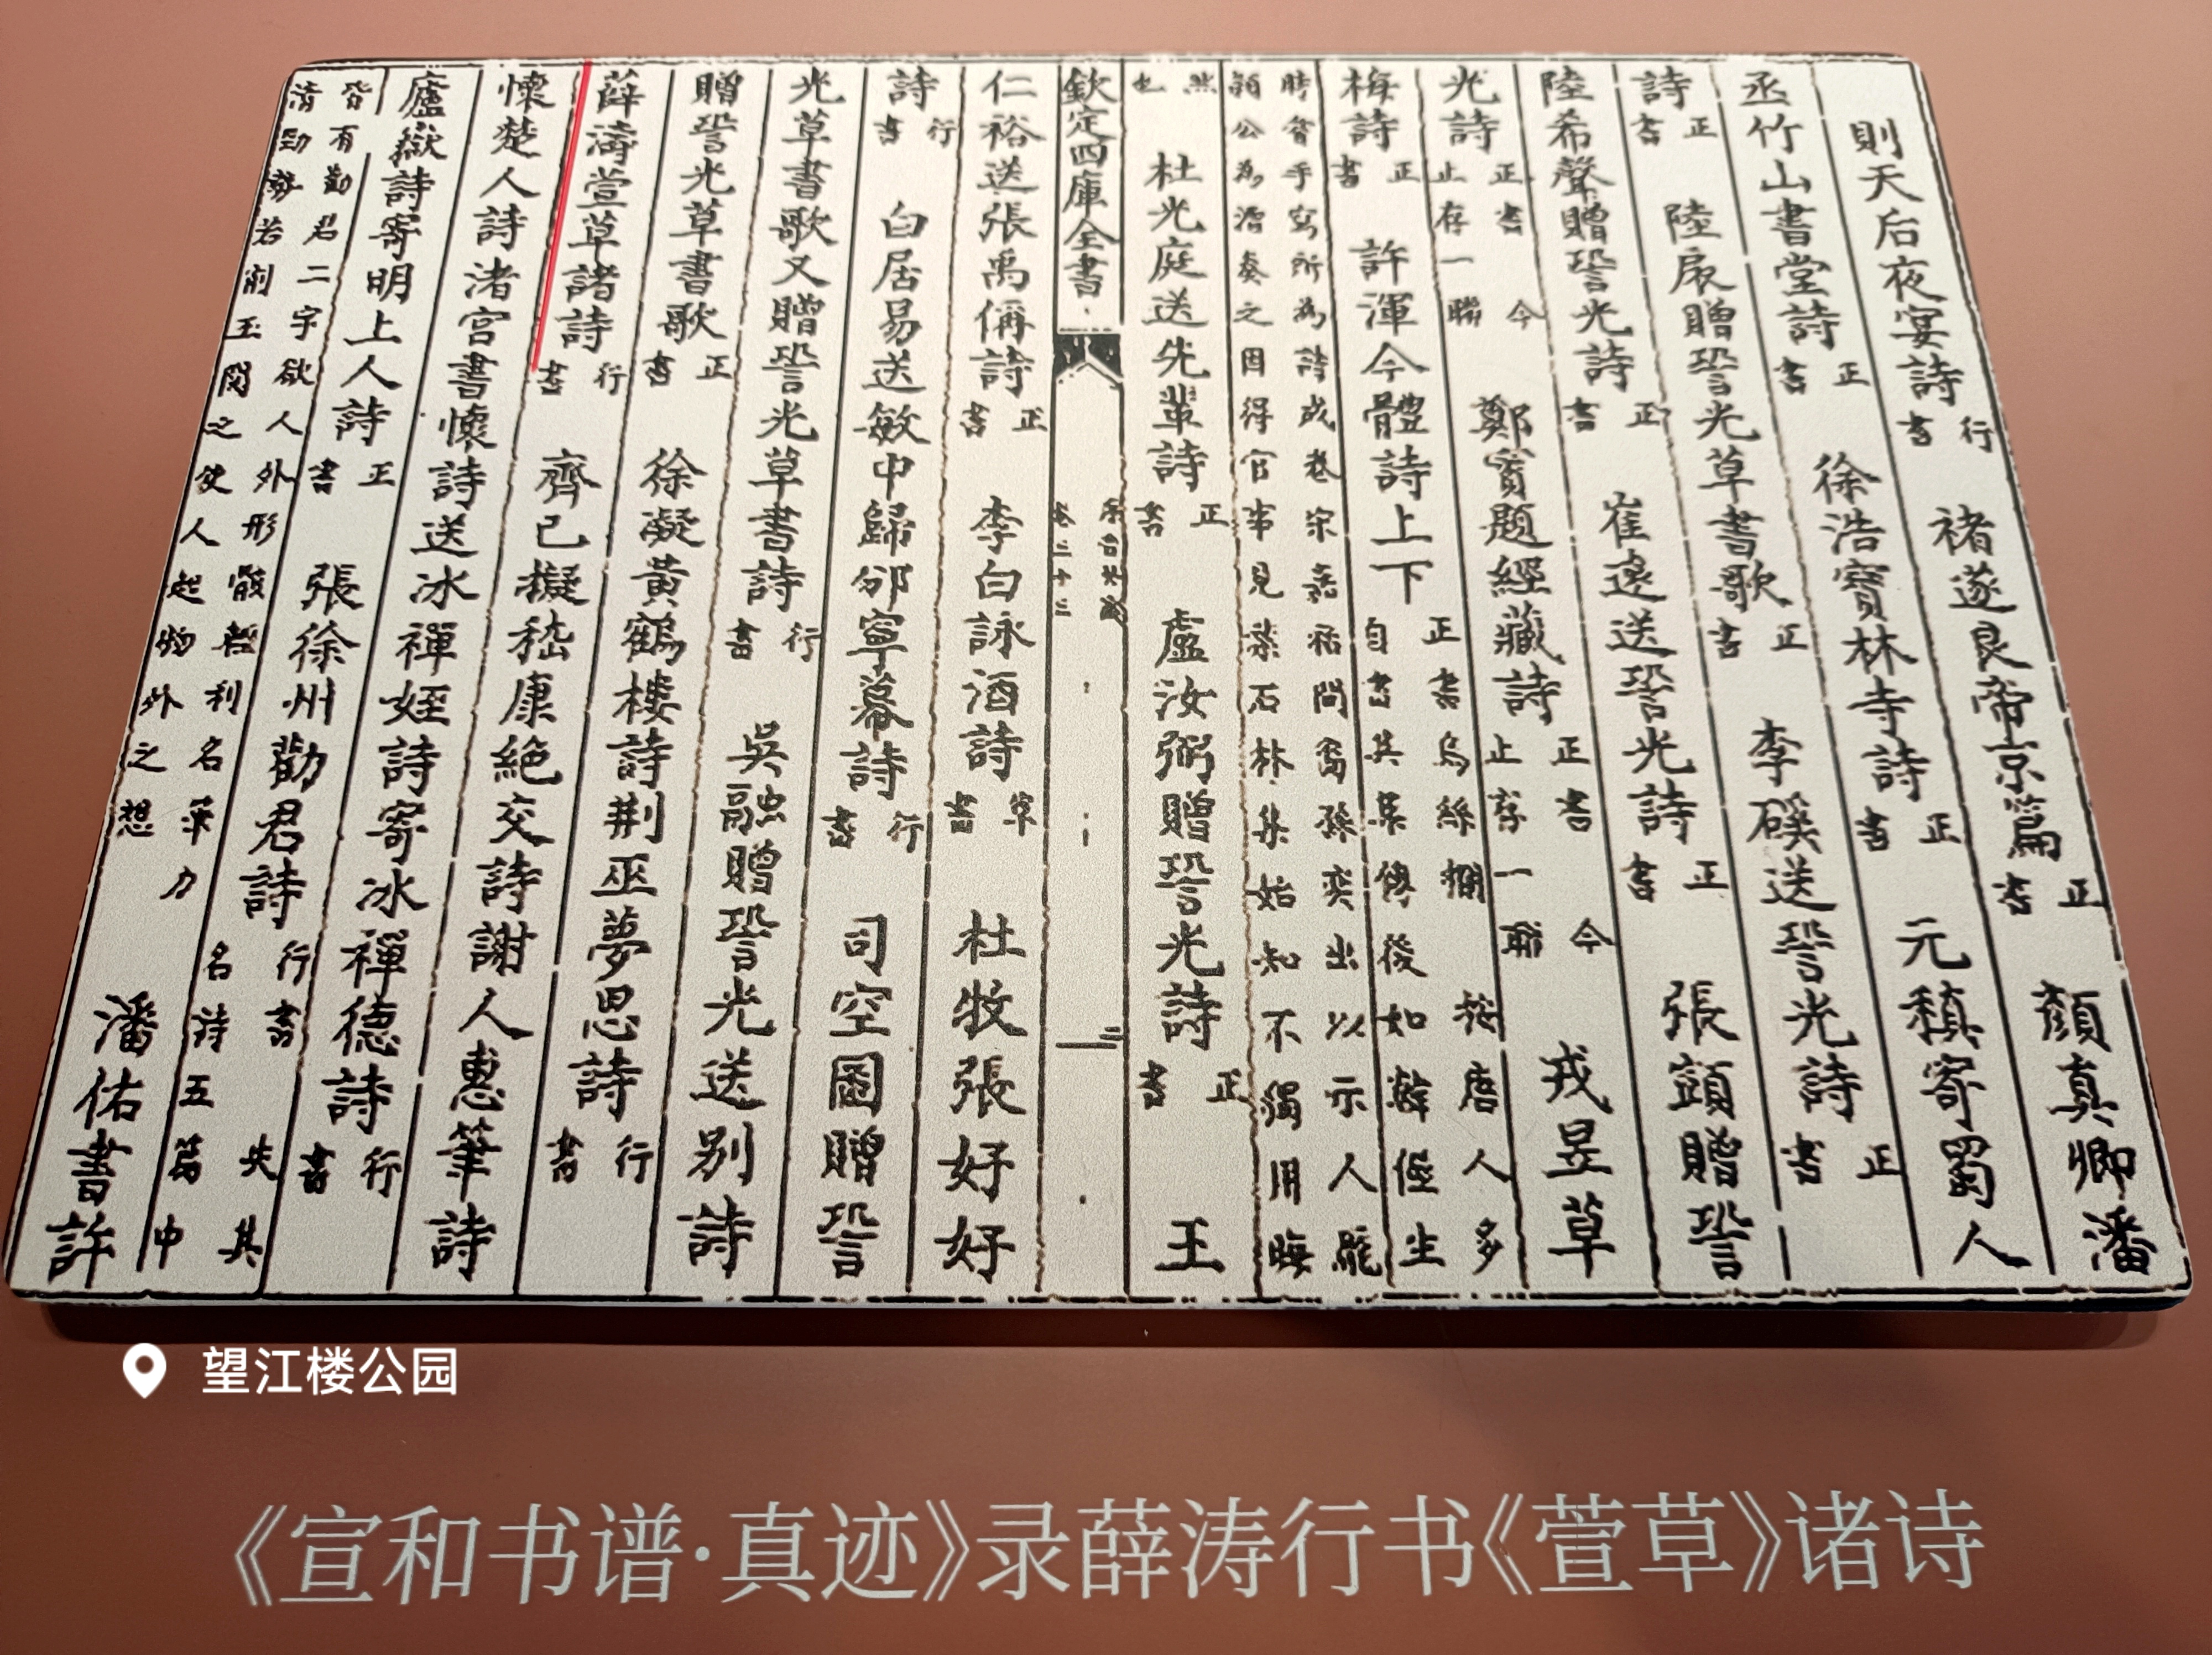 則天后夜宴詩行書　褚遂良帝京篇正書　顏真卿潘
丞竹山書堂詩正書　徐浩寶林寺詩正書　元稹寄蜀人
詩正書　陸扆贈䛒光草書歌正書　李磎送䛒光詩正書
陸希聲贈䛒光詩正書　崔遠送䛒光詩正書　張顗贈䛒
光詩正書今止存一聯　鄭賨題經藏詩正書今止存一聯　戎昱草
梅詩正書　許渾今體詩上下正書烏絲欄按唐人多自書其集傳後如韓偓生
時嘗手寫所為詩成卷宋嘉祐間裔孫奕出以示人龐潁公為漕奏之因得官事見葉石林集始知不獨用晦
然也　杜光庭送先輩詩正書　盧汝弼贈䛒光詩正書　王
欽定四庫全書
卷二十三
仁裕送張禹偁詩正書　李白詠酒詩草書　杜牧張好好
詩行書　白居易送敏中歸邠寧幕詩行書　司空圖贈䛒
光草書歌又贈䛒光草書詩行書　吳融贈䛒光送別詩
贈䛒光草書歌正書　徐凝黃鶴樓詩荆巫夢思詩行書
薛濤萱草諸詩行書　齊己擬嵇康絕交詩謝人惠筆詩
懷楚人詩渚宮書懷詩送冰禪姪詩寄冰禪德詩行書
廬嶽詩寄明上人詩正書　張徐州勸君詩行書失其名詩五篇中
皆有勸君二字欲人外形骸輕利名筆力清勁勢若削玉閱之使人起物外之想　潘佑書許
望江楼公园
《宣和书谱·真迹》录薛涛行书《萱草》诸诗